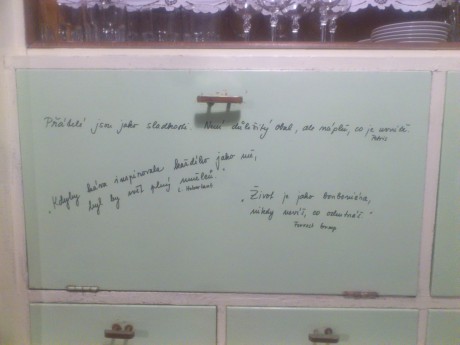 Přátelé jsou jako sladkosti. Není důležitý obal, ale náplň, co je uvnitř.
„Kdyby káva inspirovala každého jako mě,
byl by svět plný umělců."
„Život je jako bonboniéra,
nikdy nevíš, co ochutnáš"
Forrest Gump